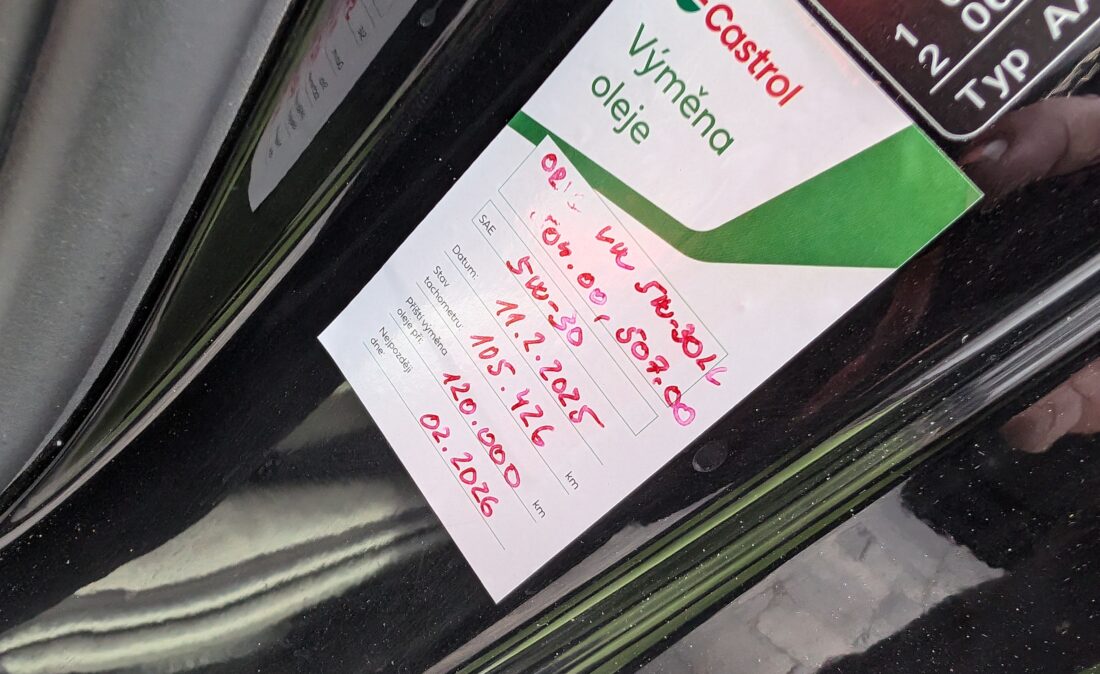 Castrol
Výměna
oleje
VW 5W-30LL
504.00, 507.00
SAE 5W-30
Datum: 11.2.2025
Stav
tachometru: 105.426 km
příští výměna
oleje při: 120.000 km
Nejpozději
dne: 02.2026
1
2
Typ